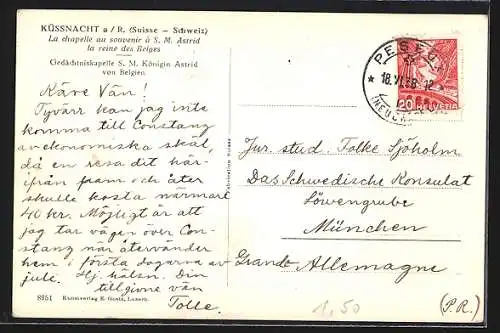 KÜSSNACHT a/R. (Suisse – Schweiz)
La chapelle au souvenir à S. M. Astrid
la reine des Belges
Gedächtniskapelle S. M. Königin Astrid
von Belgien
Käre Vän!
Tyvärr kan jag inte
komma till Constanz
av ekonomiska skäl,
då en resa dit här-
ifrån fram och åter
skulle kosta närmare
40 kr. Möjligt är att
jag tar vägen över Con-
stanz när återvänder
hem i första dagarna av
jule. Hj. hälsn. Din
tillgivne vän
Tolle.
8951 Kunstverlag E. Goetz, Luzern.
PESEUX
18.VI.38-12
(NEUCH
20 HELVETIA
Jur. stud. Folke Sjöholm
Das Schwedische Konsulat
Löwengrube
München
Grande Allemagne
(P.R.)
1,50